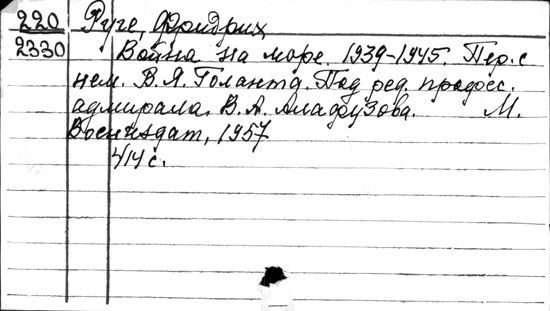 220 Руге, Фридрих
2330 Война на море. 1939-1945. Пер. с
нем. В. Я. Голантд. Под ред. професс.
адмирала. В. А. Алафузова. М.
Воениздат, 1957
414 с.